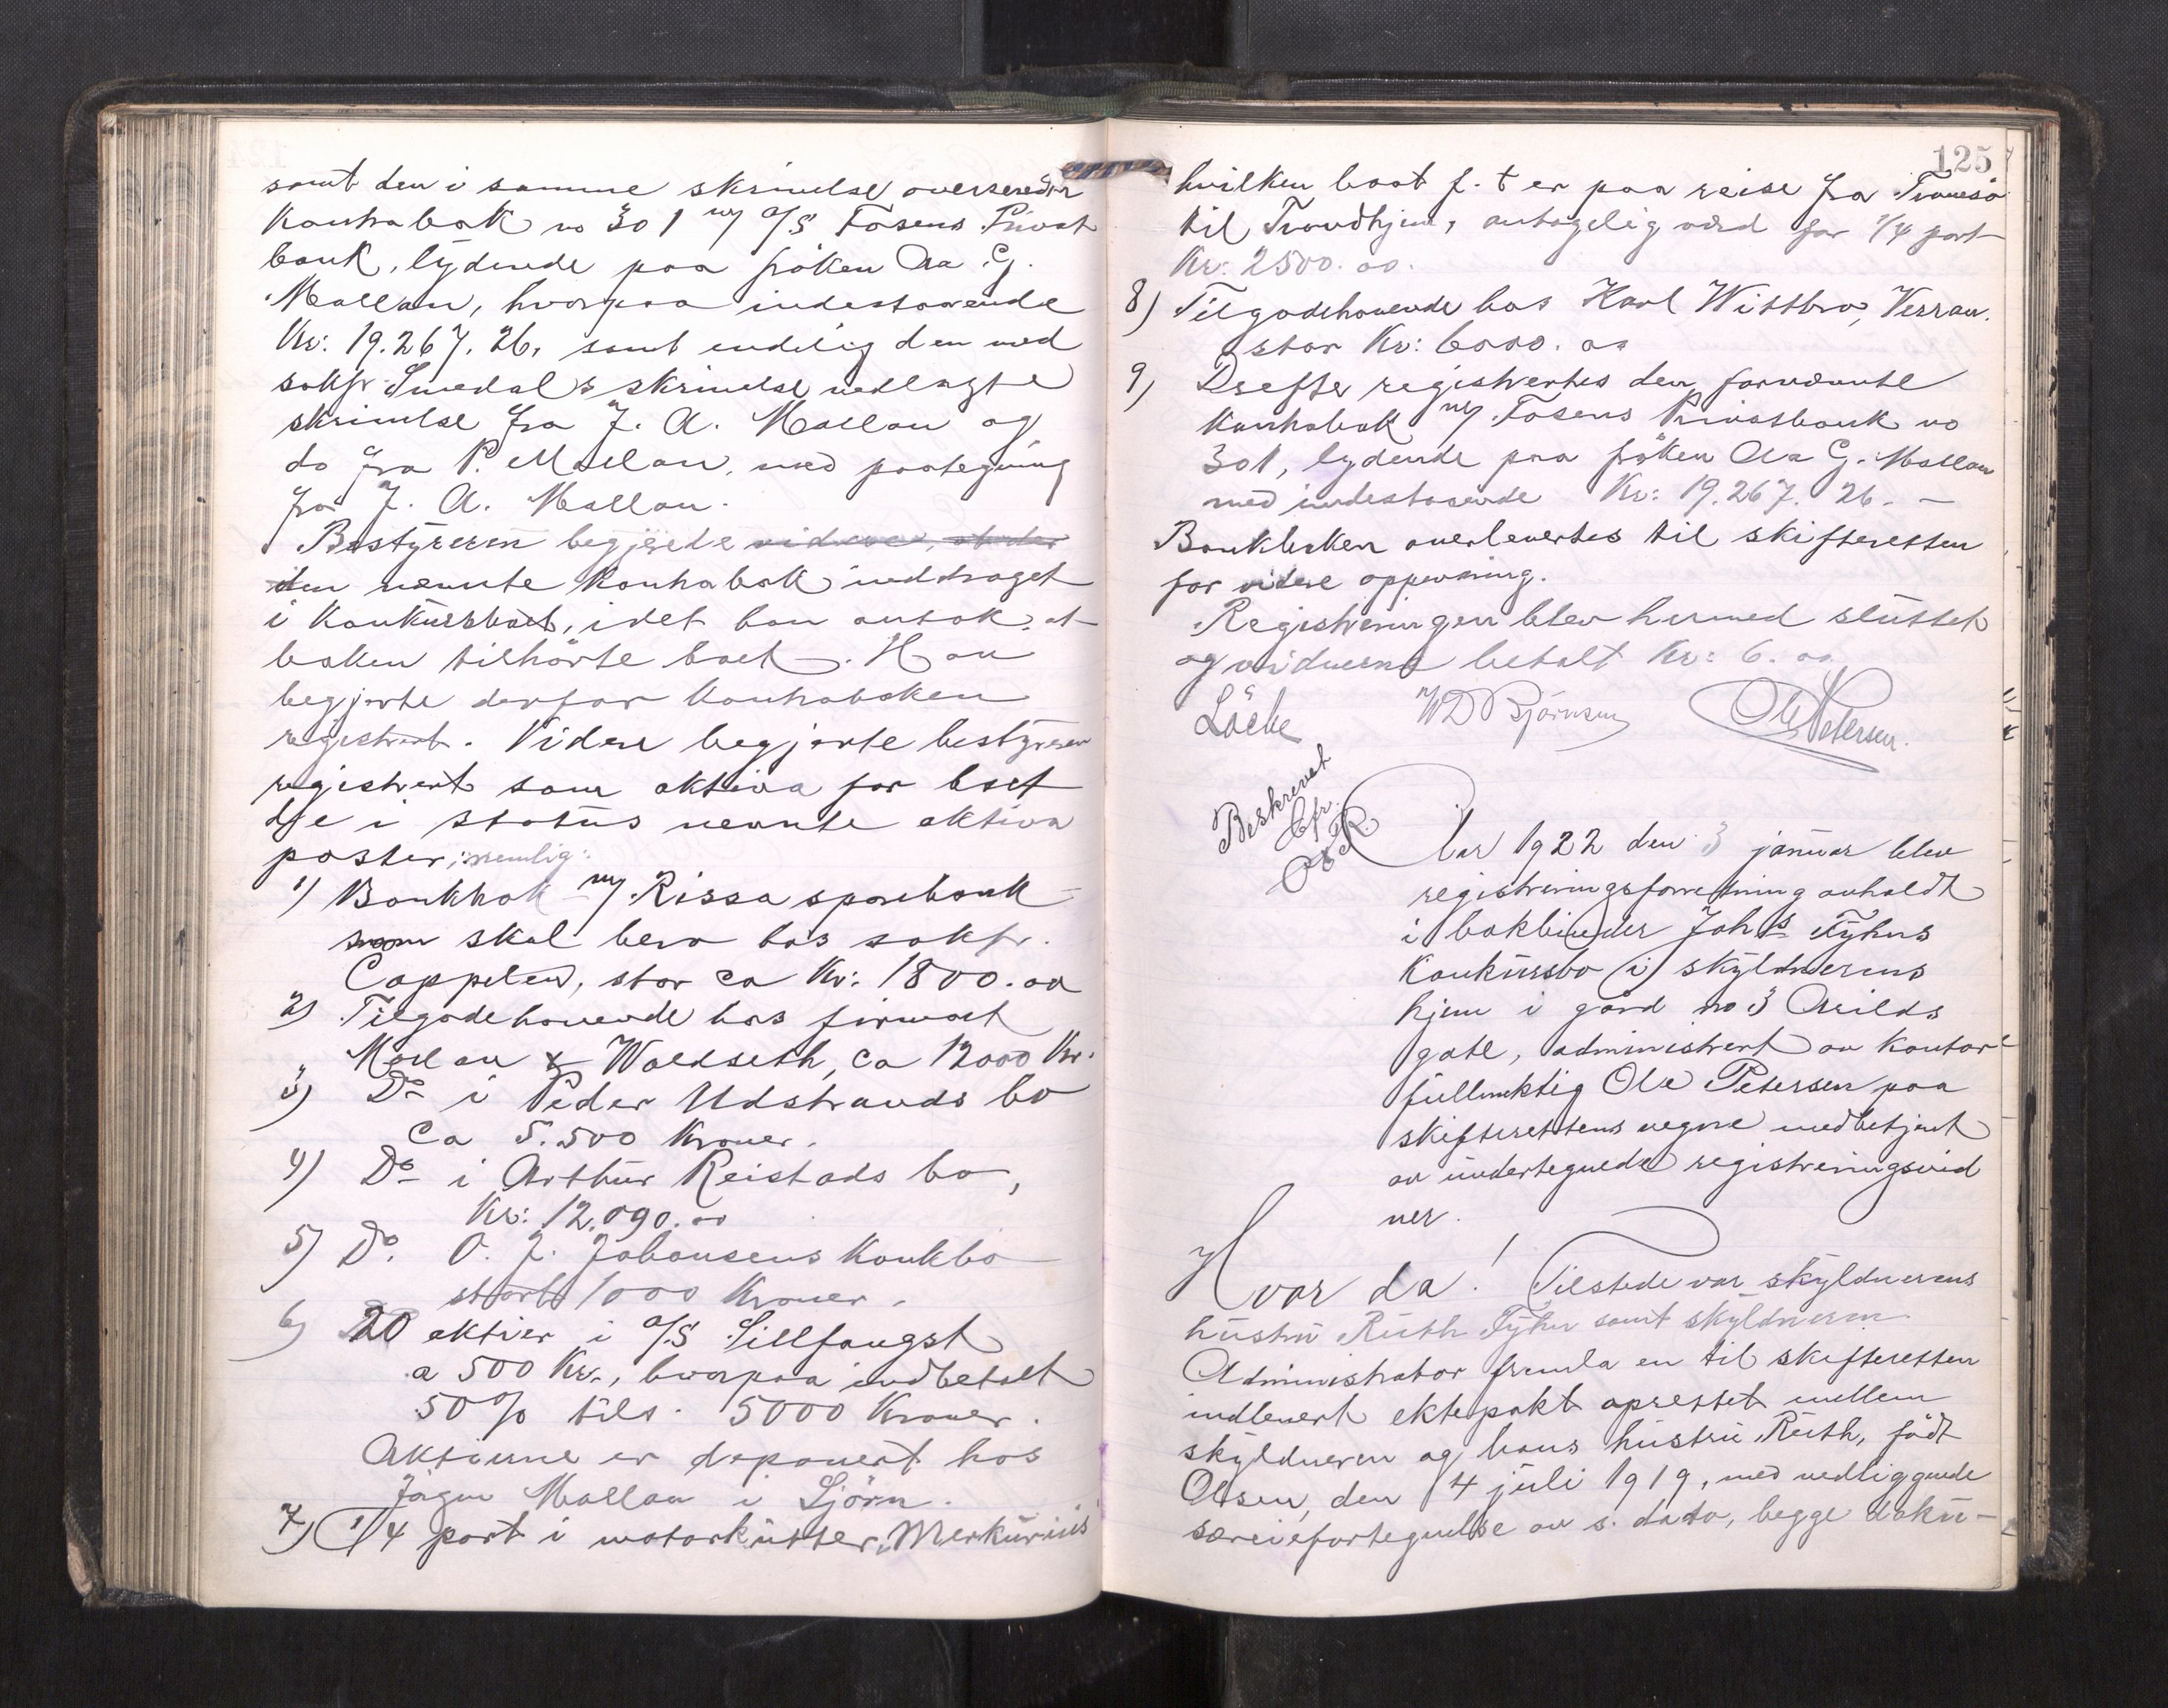 samt den i samme skrivelse oversendte
Kontrabok no 301 m/ A/S Fosens Privat
bank, lydende paa fröken Aa G.
Mællan, hvorpaa indestaaende
Kr: 19.267.26, samt endelig den med
sakfr. Smedals skrivelse vedlagte
skrivelse fra J. A. Mællan og
do fra P. Mællan, med paategning
fra J. A. Mællan.
Bestyreren begjærede
den nævnte Kontrabok inddraget
i Konkursboet, idet han antok at
boken tilhörte boet. Han
begjærte derfor Kontraboken
registrert. Videre begjærte bestyreren
registrert som aktiva for boet
de i status nevnte aktiva
poster, nemlig:
1) Bankbok m/ Rissa sparebank
som skal bero hos sakfr.
Cappelen, stor ca Kr: 1800.00
2) Tilgodehavende hos firmaet
Mællan & Waldseth, ca 12000 Kr.
3) Do i Peder Udstrands bo
ca 5.500 Kroner.
4) Do i Arthur Reistads bo,
Kr: 12.090.00
5) Do. O. J. Johansens Konkbo
stort 1000 Kroner.
6) 20 aktier i A/S Sillfangst
a 500 Kr., hvorpaa indbetalt
50% tils. 5000 Kroner.
Aktierne er deponert hos
Jögen Mællan i Sjörn.
7) 1/4 part i motorkutter "Merkurius"
125
hvilken baat f. t er paa reise fra Tromsö
til Trondhjem, antagelig værd for 1/4 part
Kr: 2500.00.
8) Tilgodehavende hos Karl Wittbro, Verran.
stor Kr: 6000.00
9) Derefter registrertes den fornævnte
Kontrabok m/ Fosens Privatbank no
301, lydende paa fröken Aa G. Mællan
med indestaaende Kr: 19.267.26. -
Bankboken overlevertes til skifteretten
for videre oppevaring.
Registreringen blev hermed sluttet
og vidnerne betalt Kr: 6.00
Löcke W D Björnsen Ole Petersen.
Beskrevet
Cfr.
O & R.
Aar 1922 den 3 januar blev
registreringsforretning avholdt
i bokbinder Johs Tyhus
Konkursbo i skyldnerens
hjem i gård no 3 Arilds
gate, administrert av kontor
fullmektig Ole Petersen paa
skifterettens vegne medbetjent
av undertegnede registreringsvid
ner.
Hvor da! Tilstede var skyldnerens
hustru Ruth Tyhus samt skyldneren
Administrator fremla en til skifteretten
indlevert ektepakt oprettet mellem
skyldneren og hans hustru Ruth, födt
Olsen, den 4 juli 1919, med vedliggende
særeiefortegnelse av s. dato, begge doku-